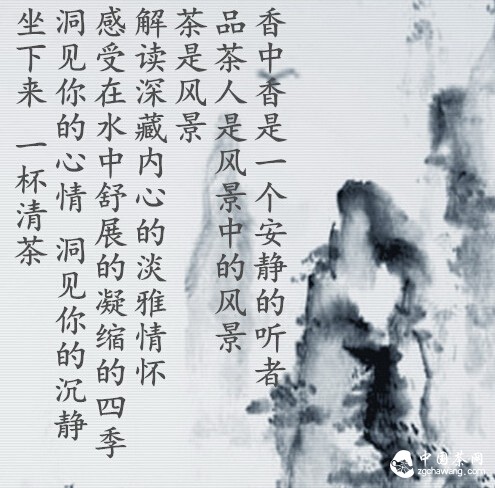 坐下来 一杯清茶
洞见你的心情 洞见你的沉静
感受在水中舒展的凝缩的四季
解读深藏内心的淡雅情怀
茶是风景
品茶人是风景中的风景
香中香是一个安静的听者
中国茶网
zgchawang.com